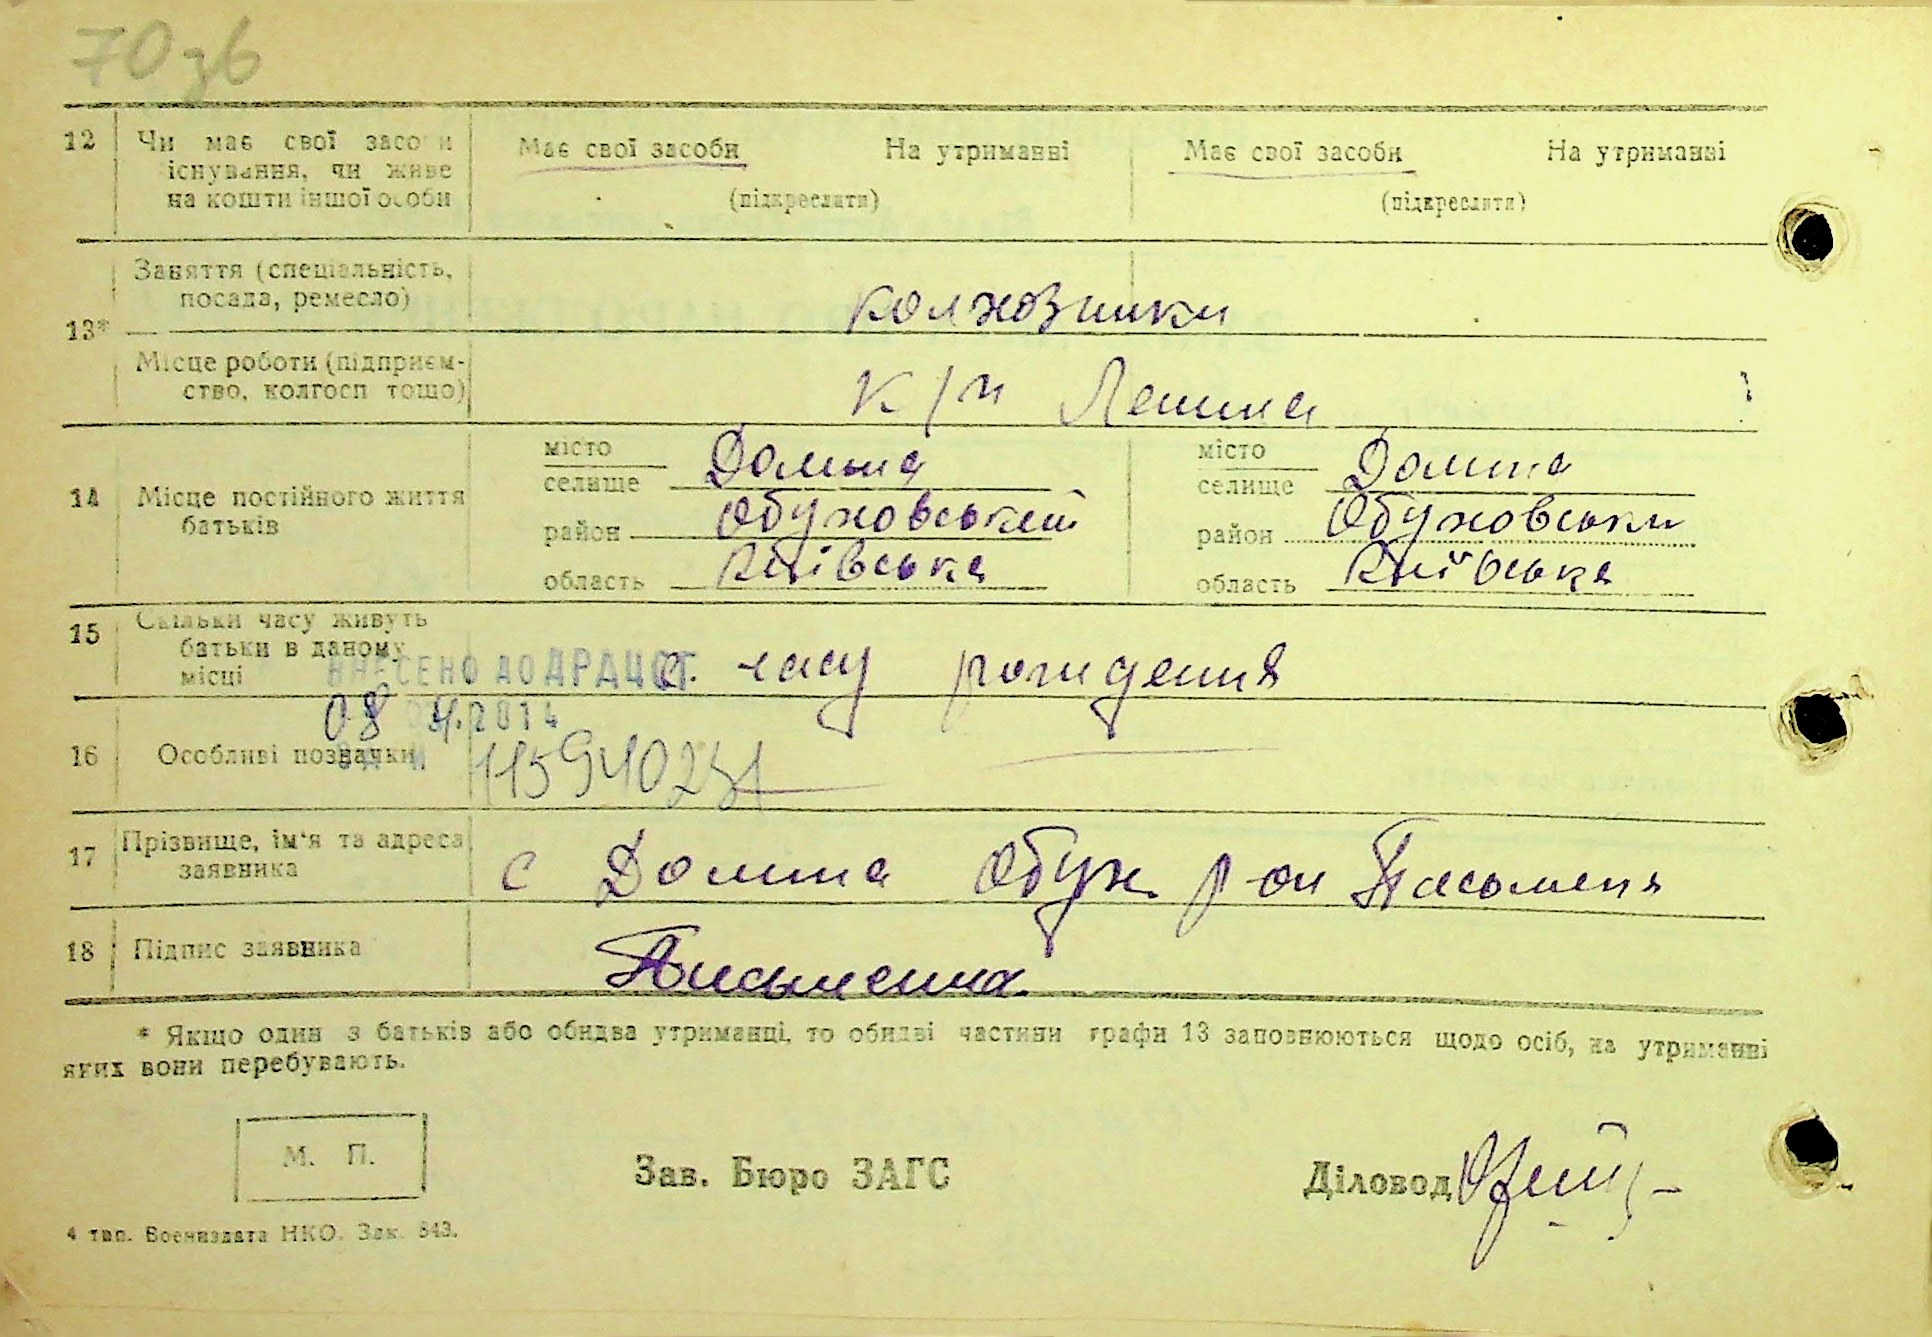 70 зв
12 Чи має свої засоби Має свої засоби На утриманні Має свої засоби На утриманні
існування, чи живе
на кошти іншої особи (підкреслити) (підкреслити)
Заняття (спеціальність,
посада, ремесло) колхозники
13*
Місце роботи (підприєм-
ство, колгосп тощо) к/п Ленина
місто Долина місто Долина
селище селище
14 Місце постійного життя
батьків район Обуховський район Обуховськи
область Київська область Київська
15 Скільки часу живуть
батьки в даному
місці с часу рождения
ВНЕСЕНО ДО ДРАЦСГ
08 4.2014
16 Особливі позначки
17 Прізвище, ім'я та адреса
заявника с Долина Обух. р-он Письменн
18 Підпис заявника Письменна
* Якщо один з батьків або обидва утриманці, то обидві частини графи 13 заповнюються щодо осіб, на утриманні
яких вони перебувають.
М. П. Зав. Бюро ЗАГС Діловод
4 тип. Воениздата НКО. Зак. 843.